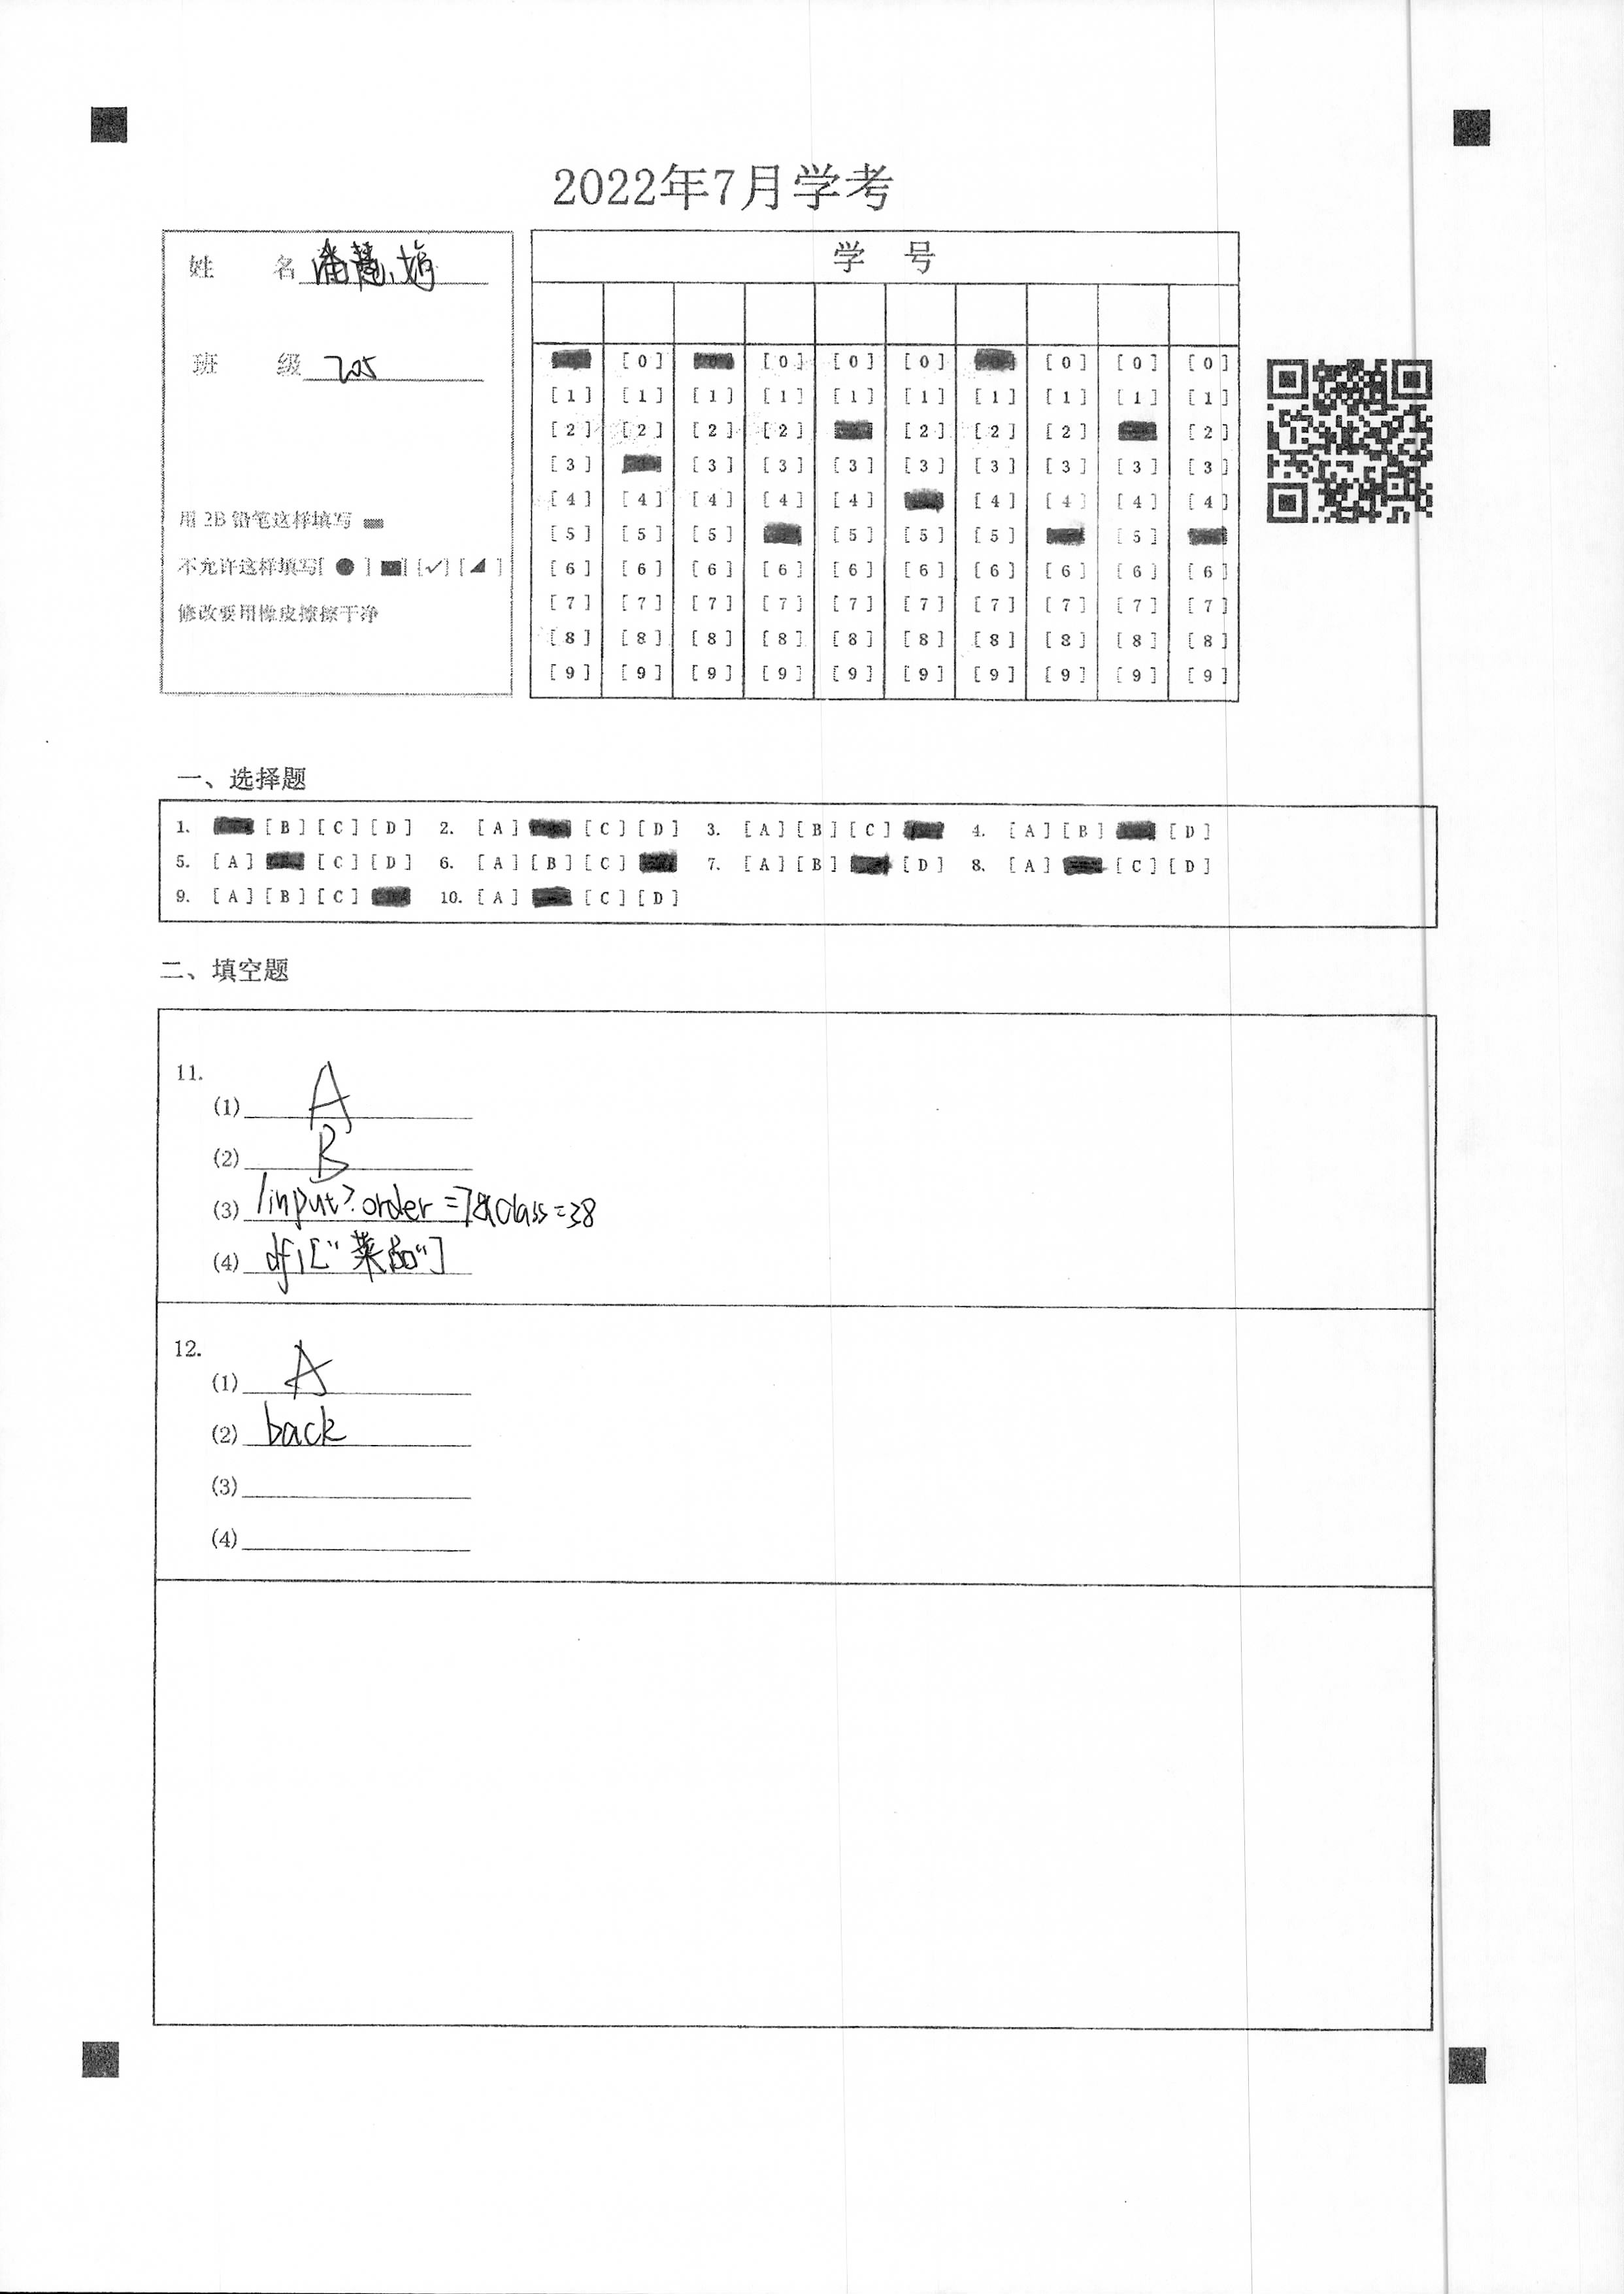 2022年7月学考
姓 名 潘慧娟
班 级 205
用 2B 铅笔这样填写
不允许这样填写[ ● ] ■ [ ✓ ] [ ◢ ]
修改要用橡皮擦擦干净
学 号
[0] [0] [0] [0] [0] [0] [0]
[1] [1] [1] [1] [1] [1] [1] [1] [1] [1]
[2] [2] [2] [2] [2] [2] [2] [2]
[3] [3] [3] [3] [3] [3] [3] [3] [3]
[4] [4] [4] [4] [4] [4] [4] [4] [4]
[5] [5] [5] [5] [5] [5] [5]
[6] [6] [6] [6] [6] [6] [6] [6] [6] [6]
[7] [7] [7] [7] [7] [7] [7] [7] [7] [7]
[8] [8] [8] [8] [8] [8] [8] [8] [8] [8]
[9] [9] [9] [9] [9] [9] [9] [9] [9] [9]
一、选择题
1. [B] [C] [D] 2. [A] [C] [D] 3. [A] [B] [C] 4. [A] [B] [D]
5. [A] [C] [D] 6. [A] [B] [C] 7. [A] [B] [D] 8. [A] [C] [D]
9. [A] [B] [C] 10. [A] [C] [D]
二、填空题
11.
(1) A
(2) B
(3) /input?order=7&class=38
(4) df1["菜品"]
12.
(1) A
(2) back
(3)
(4)